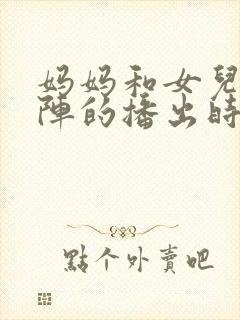 妈妈和女兒
陣的播出時
點个外賣吧